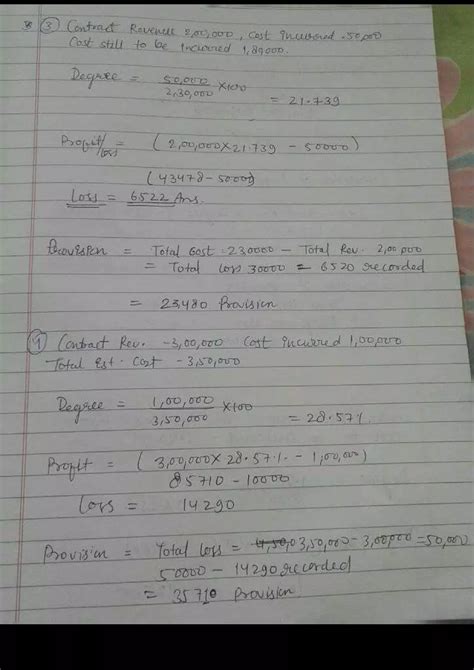 ③ Contract Revenue 2,00,000, Cost incurred 50,000
Cost still to be incurred 1,80,000.
Degree = 50,000 / 2,30,000 × 100 = 21.739
Profit/Loss = (2,00,000 × 21.739 - 50000)
(43478 - 50000)
Loss = 6522 Ans.
Provision = Total Cost 230000 - Total Rev. 2,00,000
= Total Loss 30000 = 6520 recorded
= 23480 Provision
① Contract Rev. - 3,00,000 Cost incurred 1,00,000
Total Est. Cost - 3,50,000
Degree = 1,00,000 / 3,50,000 × 100 = 28.57%
Profit = (3,00,000 × 28.57% - 1,00,000)
85710 - 10000
Loss = 14290
Provision = Total loss = 3,50,000 - 3,00,000 = 50,000
50000 - 14290 recorded
= 35710 Provision